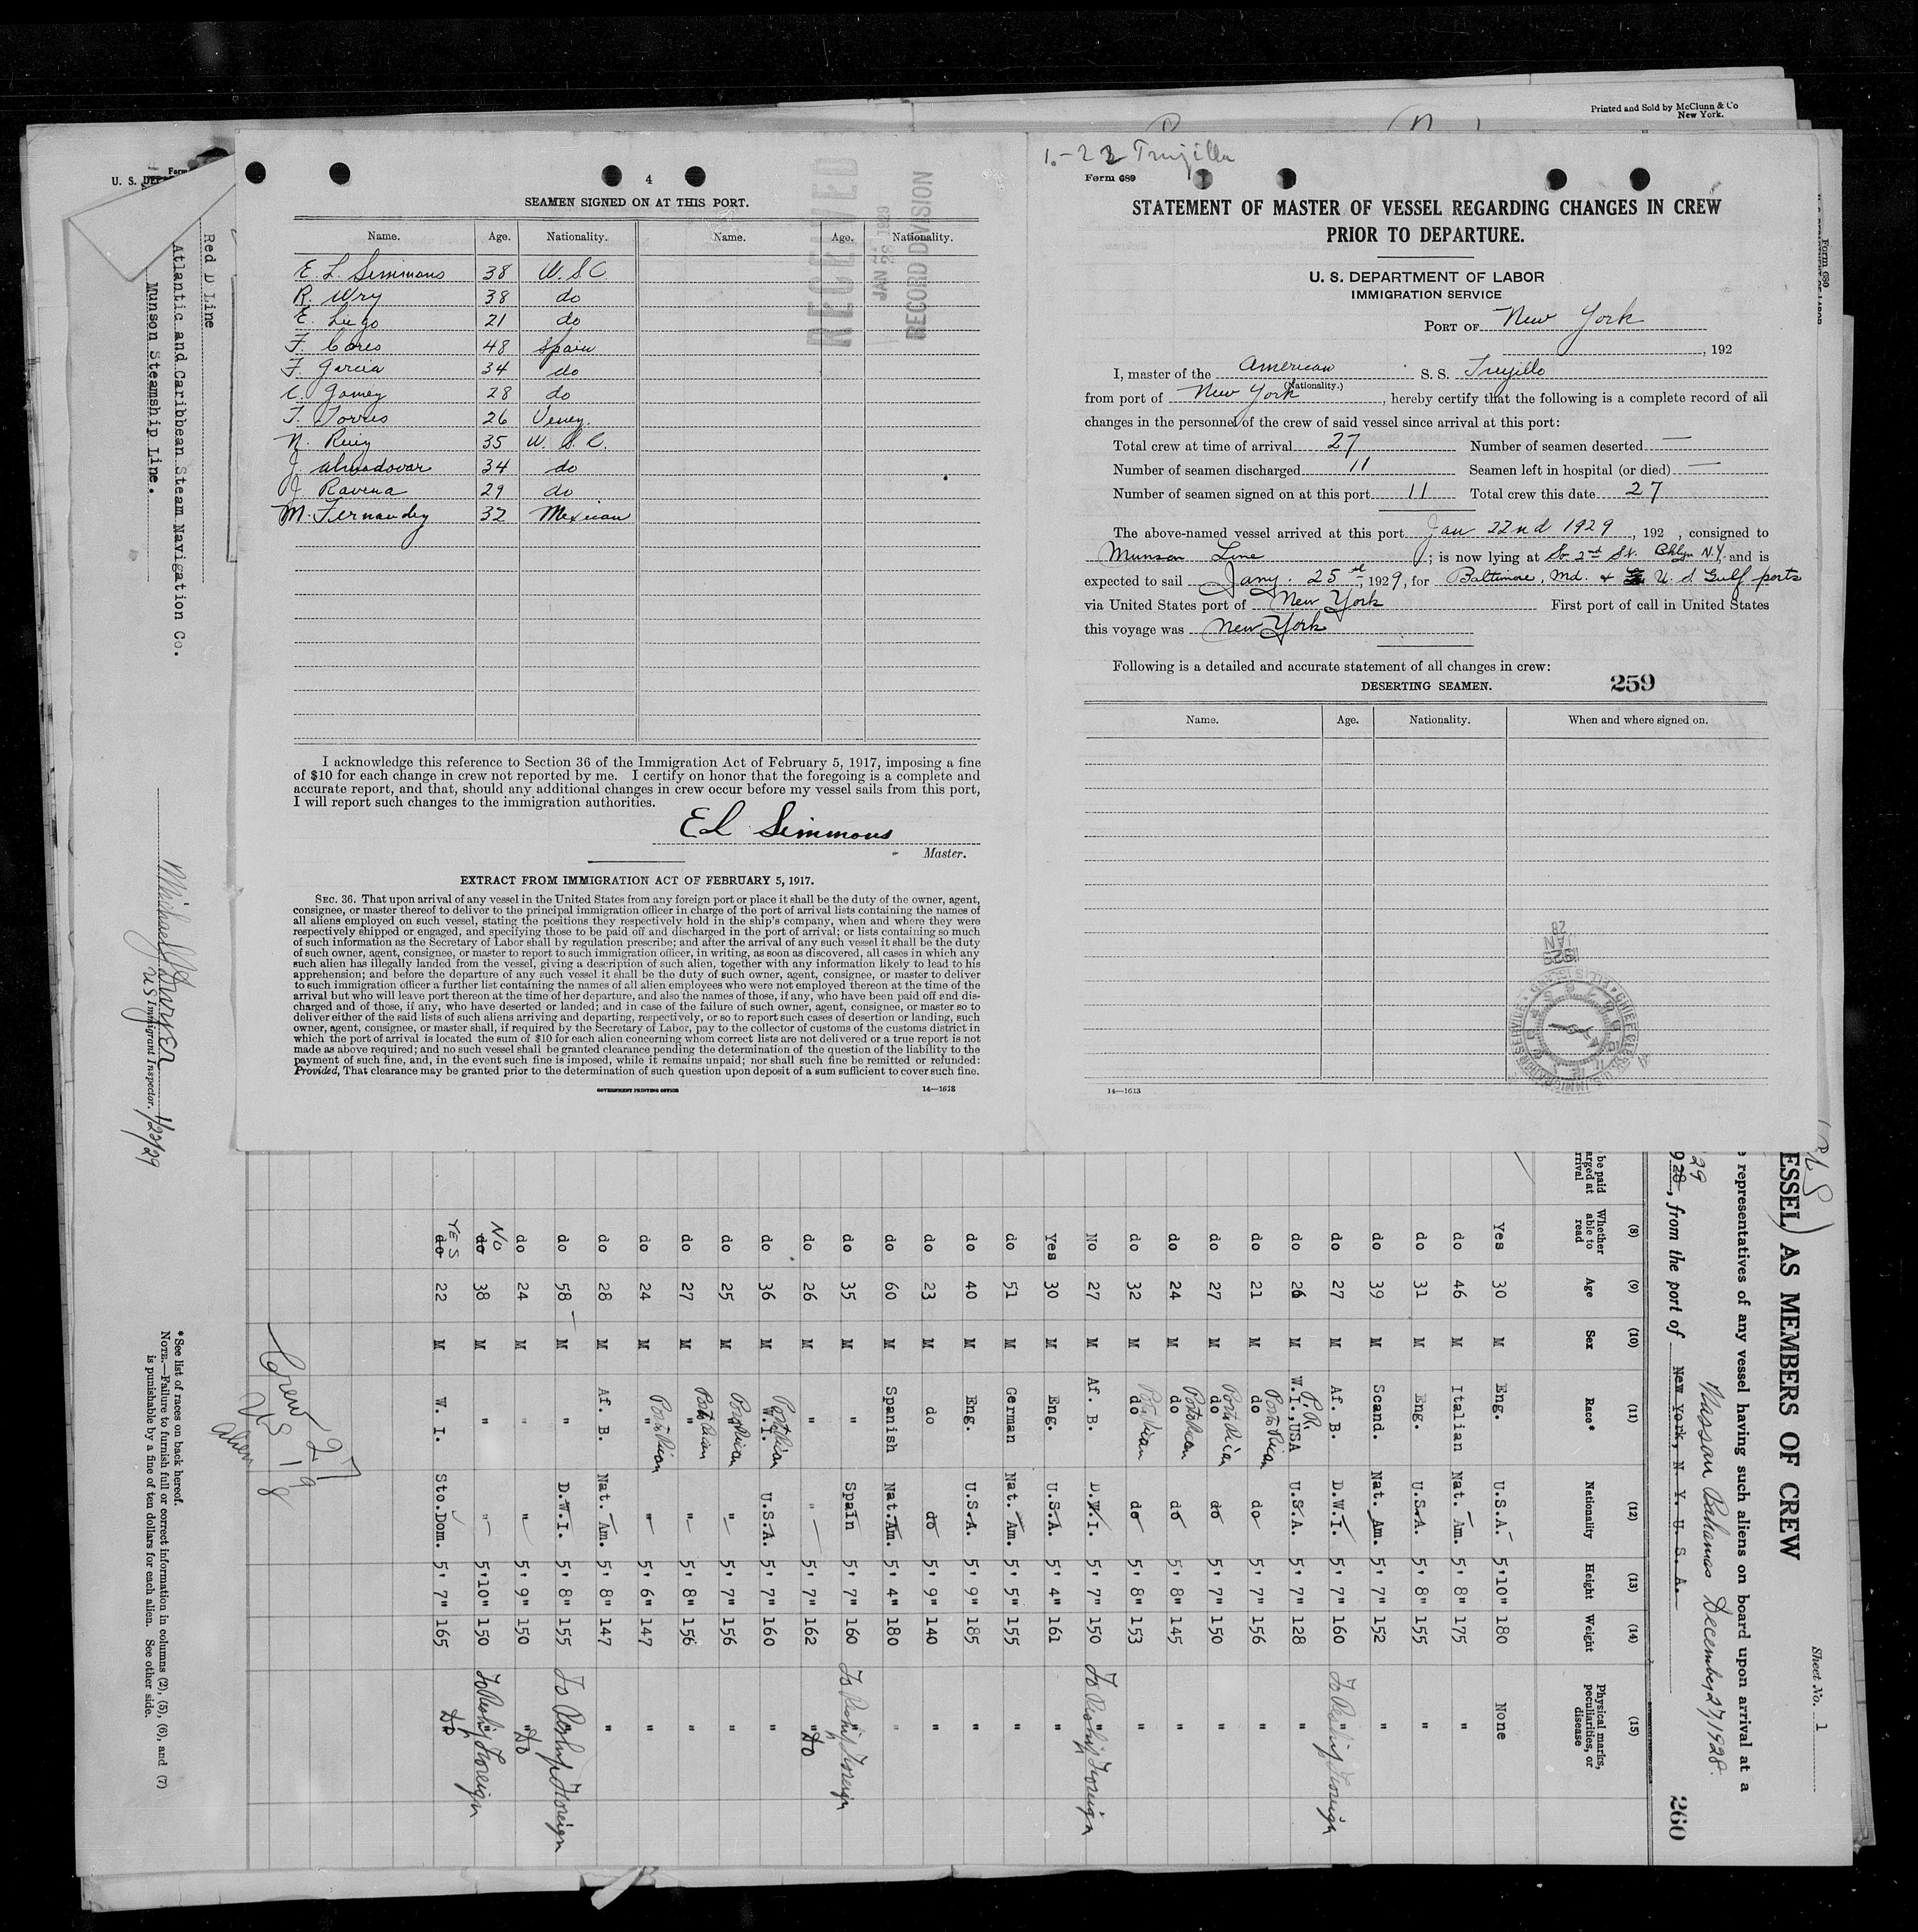 Printed and Sold by McClunn & Co
New York.
Form
U. S.
Red D Line
Atlantic and Caribbean Steam Navigation Co.
Munson Steamship Line.
U S Immigrant Inspector. 1/23/29
*See list of races on back hereof.
NOTE.—Failure to furnish full or correct information in columns (2), (5), (6), and (7)
is punishable by a fine of ten dollars for each alien. See other side.
4
SEAMEN SIGNED ON AT THIS PORT.
Name. Age. Nationality. Name. Age. Nationality.
E. L. Simmons 38 U. S. C.
R. Wry 38 do
E. Lugo 21 do
F. Cores 48 Spain
F. Garcia 34 do
C. Gomez 28 do
T. Torres 26 Venez.
N. Ruiz 35 U. S. C.
J. Almodovar 34 do
J. Ravena 29 do
M. Fernandez 32 Mexican
RECEIVED
JAN 28 1929
RECORD DIVISION
I acknowledge this reference to Section 36 of the Immigration Act of February 5, 1917, imposing a fine
of $10 for each change in crew not reported by me. I certify on honor that the foregoing is a complete and
accurate report, and that, should any additional changes in crew occur before my vessel sails from this port,
I will report such changes to the immigration authorities.
E L Simmons
Master.
EXTRACT FROM IMMIGRATION ACT OF FEBRUARY 5, 1917.
SEC. 36. That upon arrival of any vessel in the United States from any foreign port or place it shall be the duty of the owner, agent,
consignee, or master thereof to deliver to the principal immigration officer in charge of the port of arrival lists containing the names of
all aliens employed on such vessel, stating the positions they respectively hold in the ship's company, when and where they were
respectively shipped or engaged, and specifying those to be paid off and discharged in the port of arrival; or lists containing so much
of such information as the Secretary of Labor shall by regulation prescribe; and after the arrival of any such vessel it shall be the duty
of such owner, agent, consignee, or master to report to such immigration officer, in writing, as soon as discovered, all cases in which any
such alien has illegally landed from the vessel, giving a description of such alien, together with any information likely to lead to his
apprehension; and before the departure of any such vessel it shall be the duty of such owner, agent, consignee, or master to deliver
to such immigration officer a further list containing the names of all alien employees who were not employed thereon at the time of the
arrival but who will leave port thereon at the time of her departure, and also the names of those, if any, who have been paid off and dis-
charged and of those, if any, who have deserted or landed; and in case of the failure of such owner, agent, consignee, or master so to
deliver either of the said lists of such aliens arriving and departing, respectively, or so to report such cases of desertion or landing, such
owner, agent, consignee, or master shall, if required by the Secretary of Labor, pay to the collector of customs of the customs district in
which the port of arrival is located the sum of $10 for each alien concerning whom correct lists are not delivered or a true report is not
made as above required; and no such vessel shall be granted clearance pending the determination of the question of the liability to the
payment of such fine, and, in the event such fine is imposed, while it remains unpaid; nor shall such fine be remitted or refunded:
Provided, That clearance may be granted prior to the determination of such question upon deposit of a sum sufficient to cover such fine.
GOVERNMENT PRINTING OFFICE 14—1613
1-22 Trujillo
Form 689
STATEMENT OF MASTER OF VESSEL REGARDING CHANGES IN CREW
PRIOR TO DEPARTURE.
U. S. DEPARTMENT OF LABOR
IMMIGRATION SERVICE
PORT OF New York
, 192
I, master of the American S. S. Trujillo
(Nationality.)
from port of New York , hereby certify that the following is a complete record of all
changes in the personnel of the crew of said vessel since arrival at this port:
Total crew at time of arrival 27 Number of seamen deserted —
Number of seamen discharged 11 Seamen left in hospital (or died) —
Number of seamen signed on at this port 11 Total crew this date 27
The above-named vessel arrived at this port Jan 22nd 1929 , 192 , consigned to
Munson Line ; is now lying at So 2nd St. Bklyn N.Y. and is
expected to sail Jany. 25 1929, for Baltimore, Md. & U. S Gulf ports
via United States port of New York First port of call in United States
this voyage was New York
Following is a detailed and accurate statement of all changes in crew:
DESERTING SEAMEN. 259
Name. Age. Nationality. When and where signed on.
1929
JAN
28
14—1613
Form 689
ESSEL) AS MEMBERS OF CREW
Sheet No. 1
e representatives of any vessel having such aliens on board upon arrival at a
Nassau Bahamas December 27, 1928.
29
9 28, from the port of New York, N. Y. U. S. A. 260
be paid
arged at
rrival
(8) Whether able to read (9) Age (10) Sex (11) Race* (12) Nationality (13) Height (14) Weight (15) Physical marks, peculiarities, or disease
Yes 30 M Eng. U.S.A. 5'10" 180 None
do 46 M Italian Nat. Am. 5' 8" 175 "
do 31 M Eng. U.S.A. 5' 8" 155 "
do 39 M Scand. Nat. Am. 5' 7" 152 "
do 27 M Af. B. D.W.I. 5' 7" 160 " To Reship Foreign
do 26 M P.R. W.I.,USA U.S.A. 5' 7" 128 "
do 21 M do Porto Rican do 5' 7" 156 "
do 27 M do Porto Rican do 5' 7" 150 "
do 24 M do Porto Rican do 5' 8" 145 "
do 32 M do Porto Rican do 5' 8" 153 "
No 27 M Af. B. D.W.I. 5' 7" 150 " To Reship Foreign
Yes 30 M Eng. U.S.A. 5' 4" 161 "
do 51 M German Nat. Am. 5' 5" 155 "
do 40 M Eng. U.S.A. 5' 9" 185 "
do 23 M do do 5' 9" 140 "
do 60 M Spanish Nat. Am. 5' 4" 180 "
do 35 M " Spain 5' 7" 160 " To Reship Foreign
do 26 M " " 5' 7" 162 " Do
do 36 M W.I. Porto Rican U.S.A. 5' 7" 160 "
do 25 M " Porto Rican " 5' 7" 156 "
do 27 M " Porto Rican " 5' 8" 156 "
do 24 M " Porto Rican " 5' 6" 147 "
do 28 M Af. B. Nat. Am. 5' 8" 147 "
do 58 M " D.W.I. 5' 8" 155 " To Reship Foreign
do 24 M " " 5' 9" 150 " Do
do NO 38 M " " 5'10" 150 " To Reship Foreign
do YES 22 M W. I. Sto.Dom. 5' 7" 165 " Do
Crew 27
US 19
Alien 8